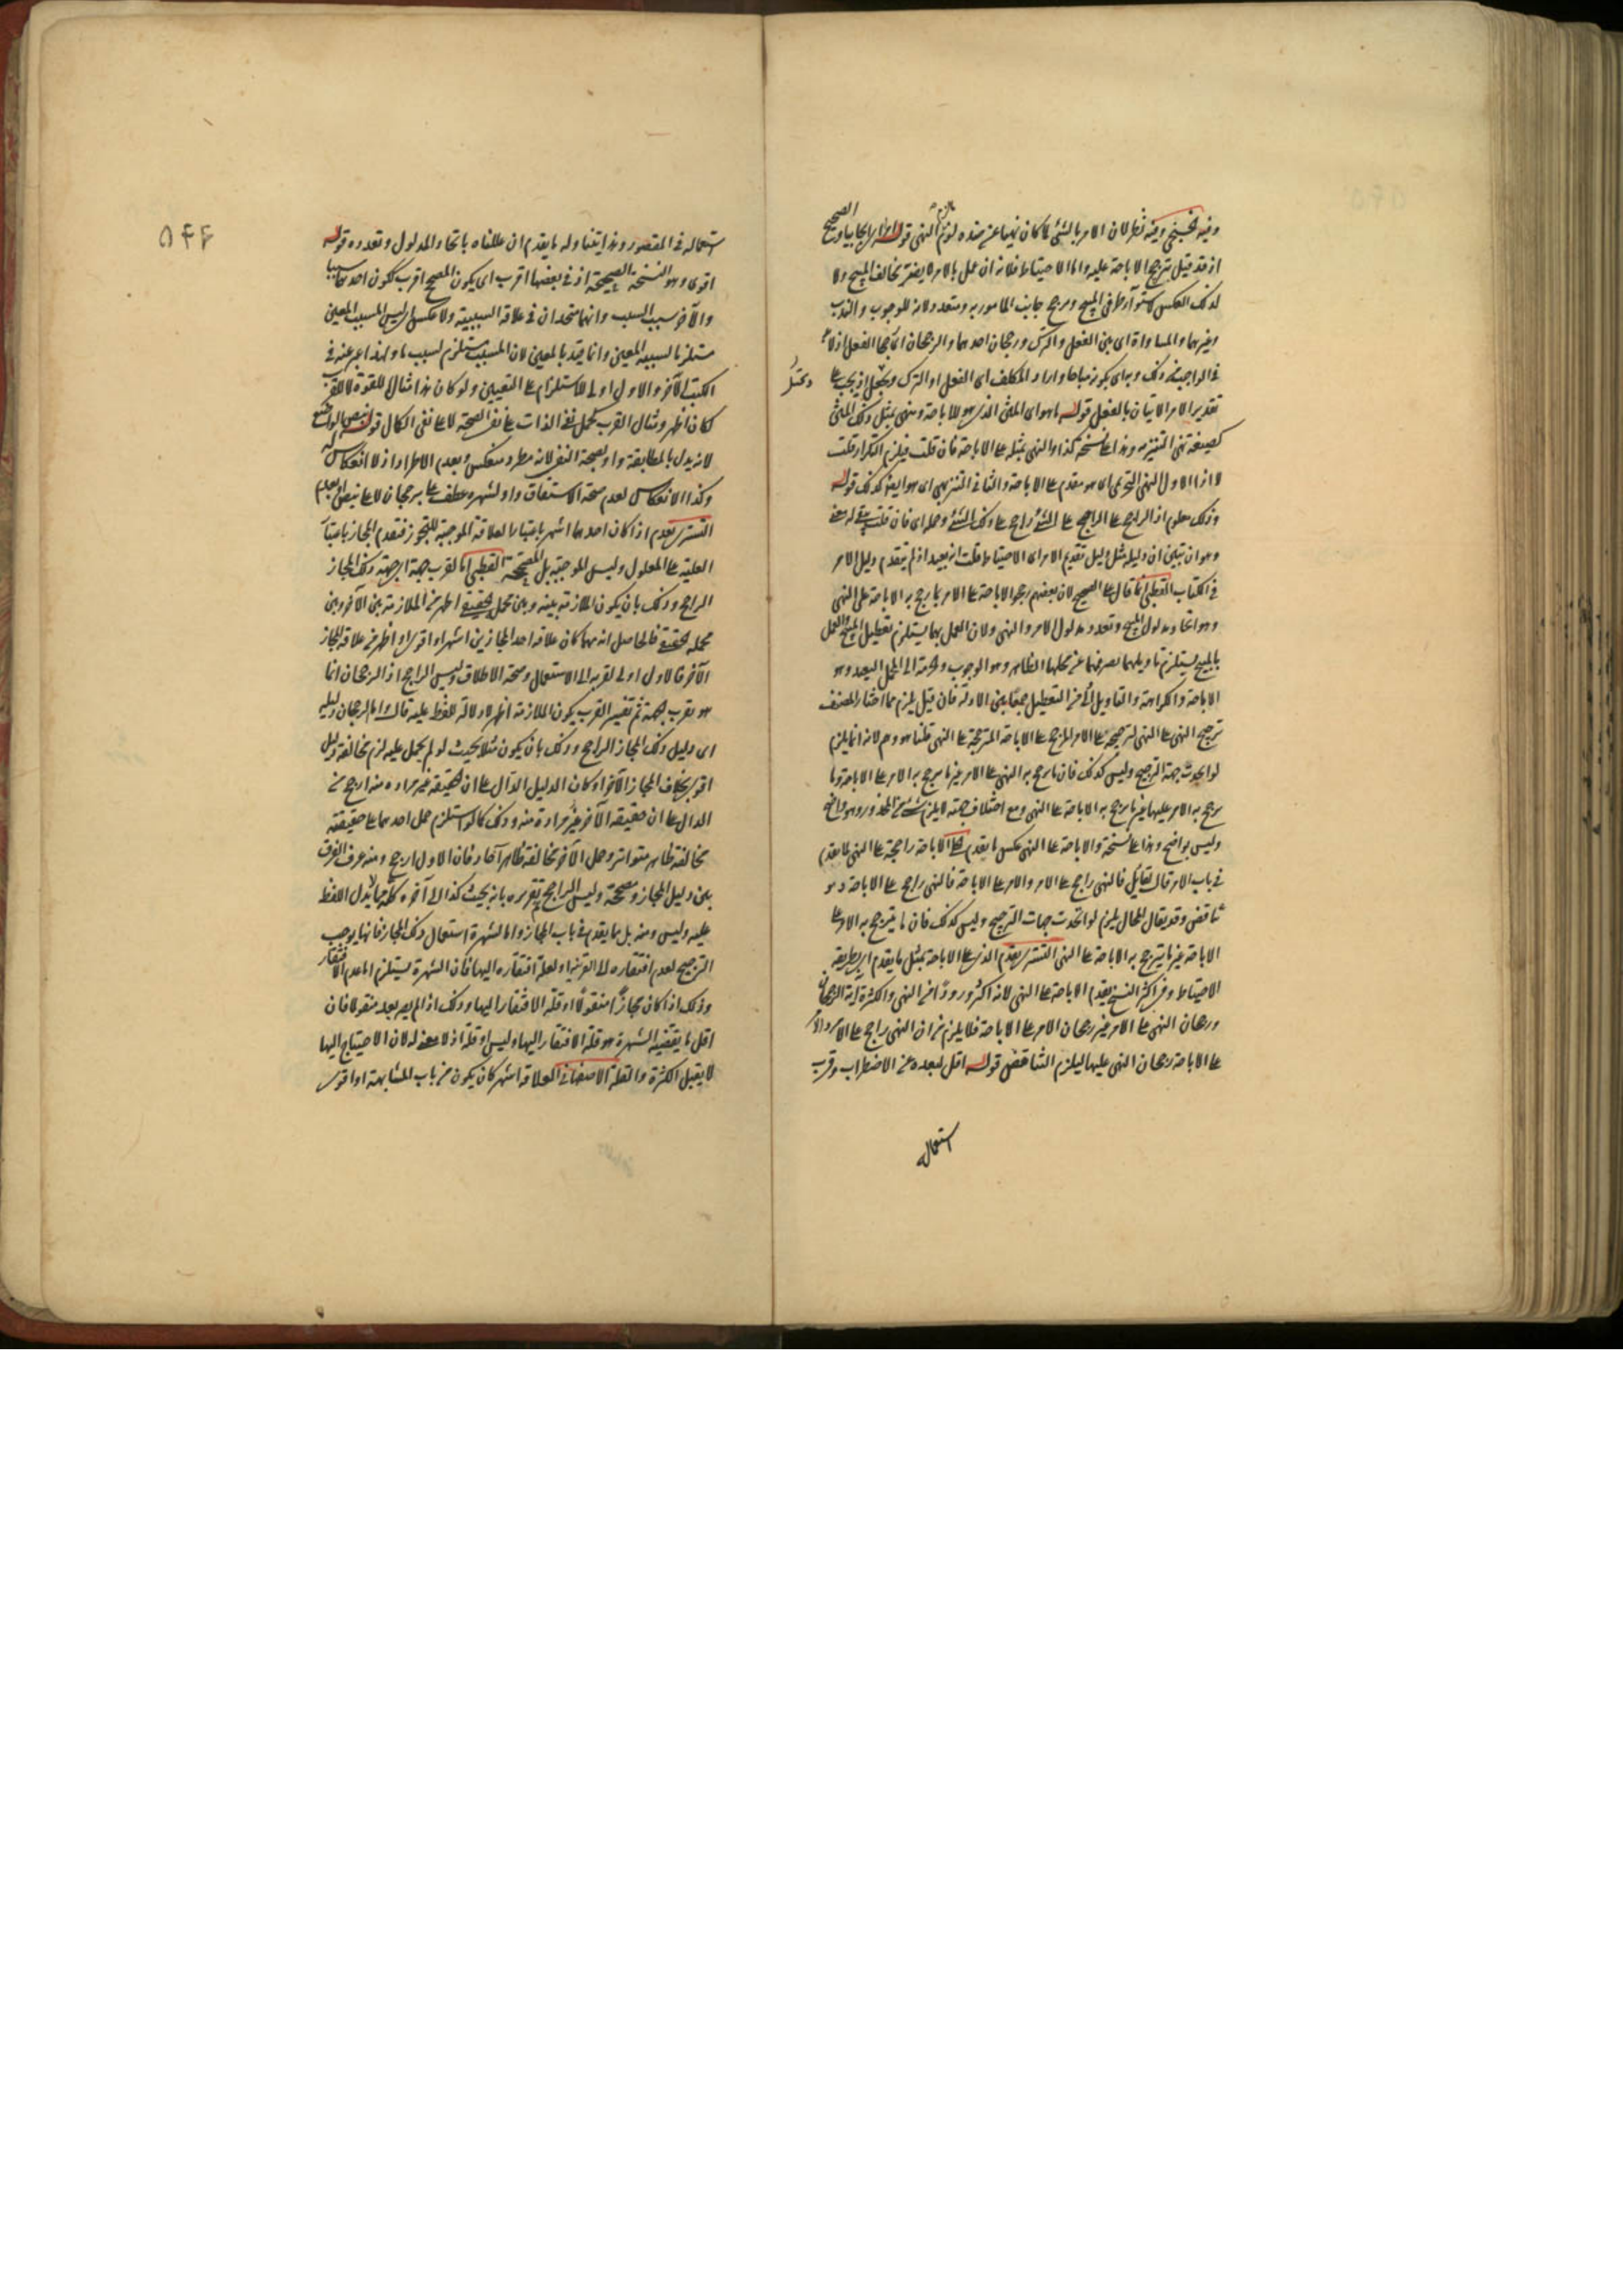 وفيه نظر لان الامر بالشئ لما كان نهيا عن ضده لزم النهى قوله
اذ قد قيل ترجح الاباحة عليه واما الاحتياط فلانه ان عمل بالامر لا يضر مخالفة المبيح ولا
كذلك العكس لاستوآء طرفى المبيح ويرجح جانب المأمور به وتعدد ولانه للوجوب والندب
وغيرهما والمساواة اى بين الفعل والترك ورجحان احدهما والرجحان اى رجحان الفعل اذ لا
فى الواجب ذلك وبه اى يكون مباحا واراد المكلف اى الفعل او الترك ويختل اذ يجب على
تقدير الامر الاتيان بالفعل قوله ما هو اى المعنى الذى هو للاباحة ونهى بمثل ذلك المعنى
كصيغة نهى التنزيه وهذا على نسخة كذا والنهى بمثله على الاباحة فان قلت فيلزم التكرار قلت
لا اذ الاول النهى التحريمى اى هو مقدم على الاباحة والثانى التنزيهى اى هو ايضا كذلك قوله
وذلك معلوم اذ الراجح على الراجح على الشئ راجح على ذلك الشئ وحله اى فان قلت بقى له معنى
وهو ان تبيين ان دليله مثل دليل تقديم الامر اى الاحتياط قلت انه بعيد اذ لم يتقدم دليل الامر
فى الكتاب القطبى انما قال على الصحيح لان بعضهم رجح الاباحة على الامر بما رجح به الاباحة على النهى
وهو اتحاد مدلول المبيح وتعدد مدلول الامر والنهى ولان العمل بهما يستلزم تعطيل المبيح والعمل
بالمبيح يستلزم تأويلهما بصرفهما عن محلهما الظاهر وهو الوجوب والحرمة الى المحمل البعيد وهو
الاباحة والكراهة والتأويل اولى من التعطيل جمعا بين الادلة فان قيل يلزم مما اختار المصنف
ترجيح النهى على النهى لترجيحه على الامر المرجح على الاباحة المترجحة على النهى قلنا هو وهم لانه انما يلزم
لو اتحدت جهة الترجيح وليس كذلك فان ما رجح به النهى على الامر غير ما يرجح به الامر على الاباحة وما
يرجح به الامر عليها غير ما يرجح به الاباحة على النهى ومع اختلاف جهته لا يلزم شئ من المحذور وهو واضح
وليس بواضح وهذا على نسخة والاباحة على النهى عكس ما يقدم الاباحة راجحة على النهى لما تقدم
فى باب الامر قال لقائل فالنهى راجح على الامر والامر على الاباحة فالنهى راجح على الاباحة وهو
تناقض وقد يقال المحال يلزم لو اتحدت جهات الترجيح وليس كذلك فان ما يترجح به الامر على
الاباحة غير ما يترجح به الاباحة على النهى التسترى يقدم الذى على الاباحة بمثل ما يقدم اى بطريقة
الاحتياط وفى اكثر النسخ يقدم الاباحة على النهى لانه اكثر ورودا من النهى والكثرة آية الرجحان
ورجحان النهى على الامر غير رجحان الامر على الاباحة فلا يلزم من ان النهى راجح على الامر
على الاباحة رجحان النهى عليها ليلزم التناقض قوله اقل لبعده عن الاضطراب وقرب
استعماله
٥٤٤
استعماله فى المقصود وهذا يتناوله ما يقدم ان عللناه باتحاد المدلول وتعدده قوله
اقوى وهو النسخة الصحيحة اذ فى بعضها اقرب اى يكون المصحح اقرب ككون احدهما سببا
والآخر سبب السبب وانهما متحدان فى علاقة السببية ولا عكس اى ليس المسبب المعين
مستلزما لسببه المعين وانما قيد بالمعين لان المسبب يستلزم لسبب ما ولهذا عبر عنه فى
الكتب الآخر والاول اولى للاستلزام على التعيين ولو كان هذا مثالا للقوة لا للقرب
لكان اظهر ومثال القرب كحمل نفى الذات على نفى الصحة لا على نفى الكمال قوله
لانه يدل بالمطابقة واو لصحة النفى لانه مطرد منعكس وبعدم الاطراد اذ لا انعكاس له
وكذا الانعكاس لعدم صحة الاشتقاق واو لشهرة عطف على برجحان لا على نبض
التسترى يقدم اذا كان احدهما اشهر باعتبار العلاقة الموجبة للتجوز فتقدم المجاز باعتبار
العلية على المعلول وليس الموجبة بل المصححة القطبى اما لقرب جهة اى جهة ذلك المجاز
الراجح وذلك بان يكون الملازمة بينه وبين محمل الحقيقى اظهر من الملازمة بين الآخر وبين
محمله الحقيقى فالحاصل انه مهما كان علاقة احد المجازين اشهر او اقوى او اظهر من علاقة المجاز
الآخر فالاول اولى لقربه الى الاستعمال وصحة الاطلاق وليس الراجح اذ الرجحان انما
هو بقرب الجهة ثم تفسير القرب بكون الملازمة اظهر لا دلالة للفظ عليه قال واما لرجحان دليله
اى دليل ذلك المجاز الراجح وذلك بان يكون مثلا بحيث لو لم يحمل عليه لزم مخالفة دليل
اقوى بخلاف المجاز الآخر او كان الدليل الدال على ان الحقيقة غير مراده منه ارجح من
الدال على ان حقيقة الآخر غير مرادة منه وذلك كما لو استلزم حمل احدهما على حقيقته
مخالفة ظاهر متواتر وحمل الآخر مخالفة ظاهر آحاد فان الاول ارجح ومنه عرف الفرق
بين دليل المجاز ومصححه وليس الراجح تقريره بانه بحيث كذا الى آخره مما لا يدل اللفظ
عليه وليس ومنه بل ما يقدم فى باب المجاز واما لشهرة استعمال ذلك المجاز فانها يوجب
الترجيح لعدم افتقاره الى القرينة او لعلة افتقاره اليها فان الشهرة يستلزم اما عدم الافتقار
وذلك اذا كان مجازا منقولا او قلة الافتقار اليها وذلك اذا لم يصر بعد منقولا فان
اقل ما يقتضيه الشهرة هو قلة الافتقار اليها وليس او قلة اذ لا معنى له لان الاحتياج اليها
لا يقبل الكثرة والقلة الاصفهانى العلاقة اشهر كان يكون من باب المشابهة او اقوى